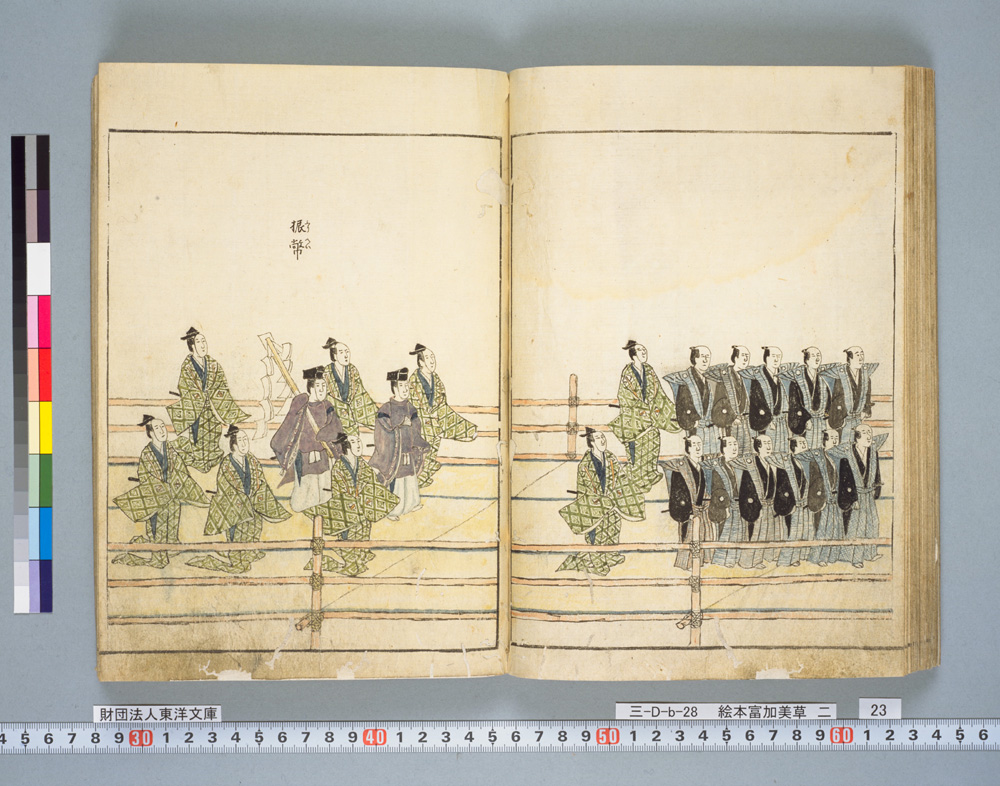 振幣
財団法人東洋文庫
三-D-b-28 絵本富加美草 二
23
4 5 6 7 8 9 30 1 2 3 4 5 6 7 8 9 40 1 2 3 4 5 6 7 8 9 50 1 2 3 4 5 6 7 8 9 60 1 2 3 4 5 6